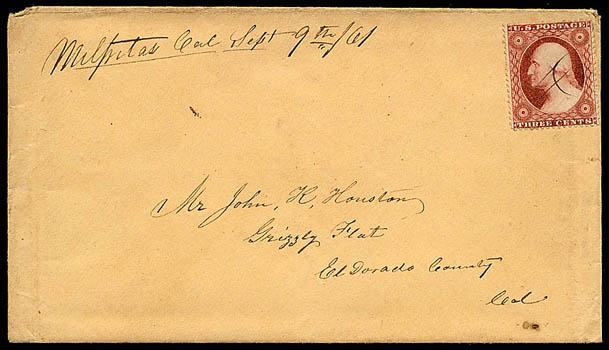 Milpitas Cal Sept 9th/61
U.S. POSTAGE
THREE CENTS
Mr John, H, Houston
Grizzly Flat
El Dorado County
Cal